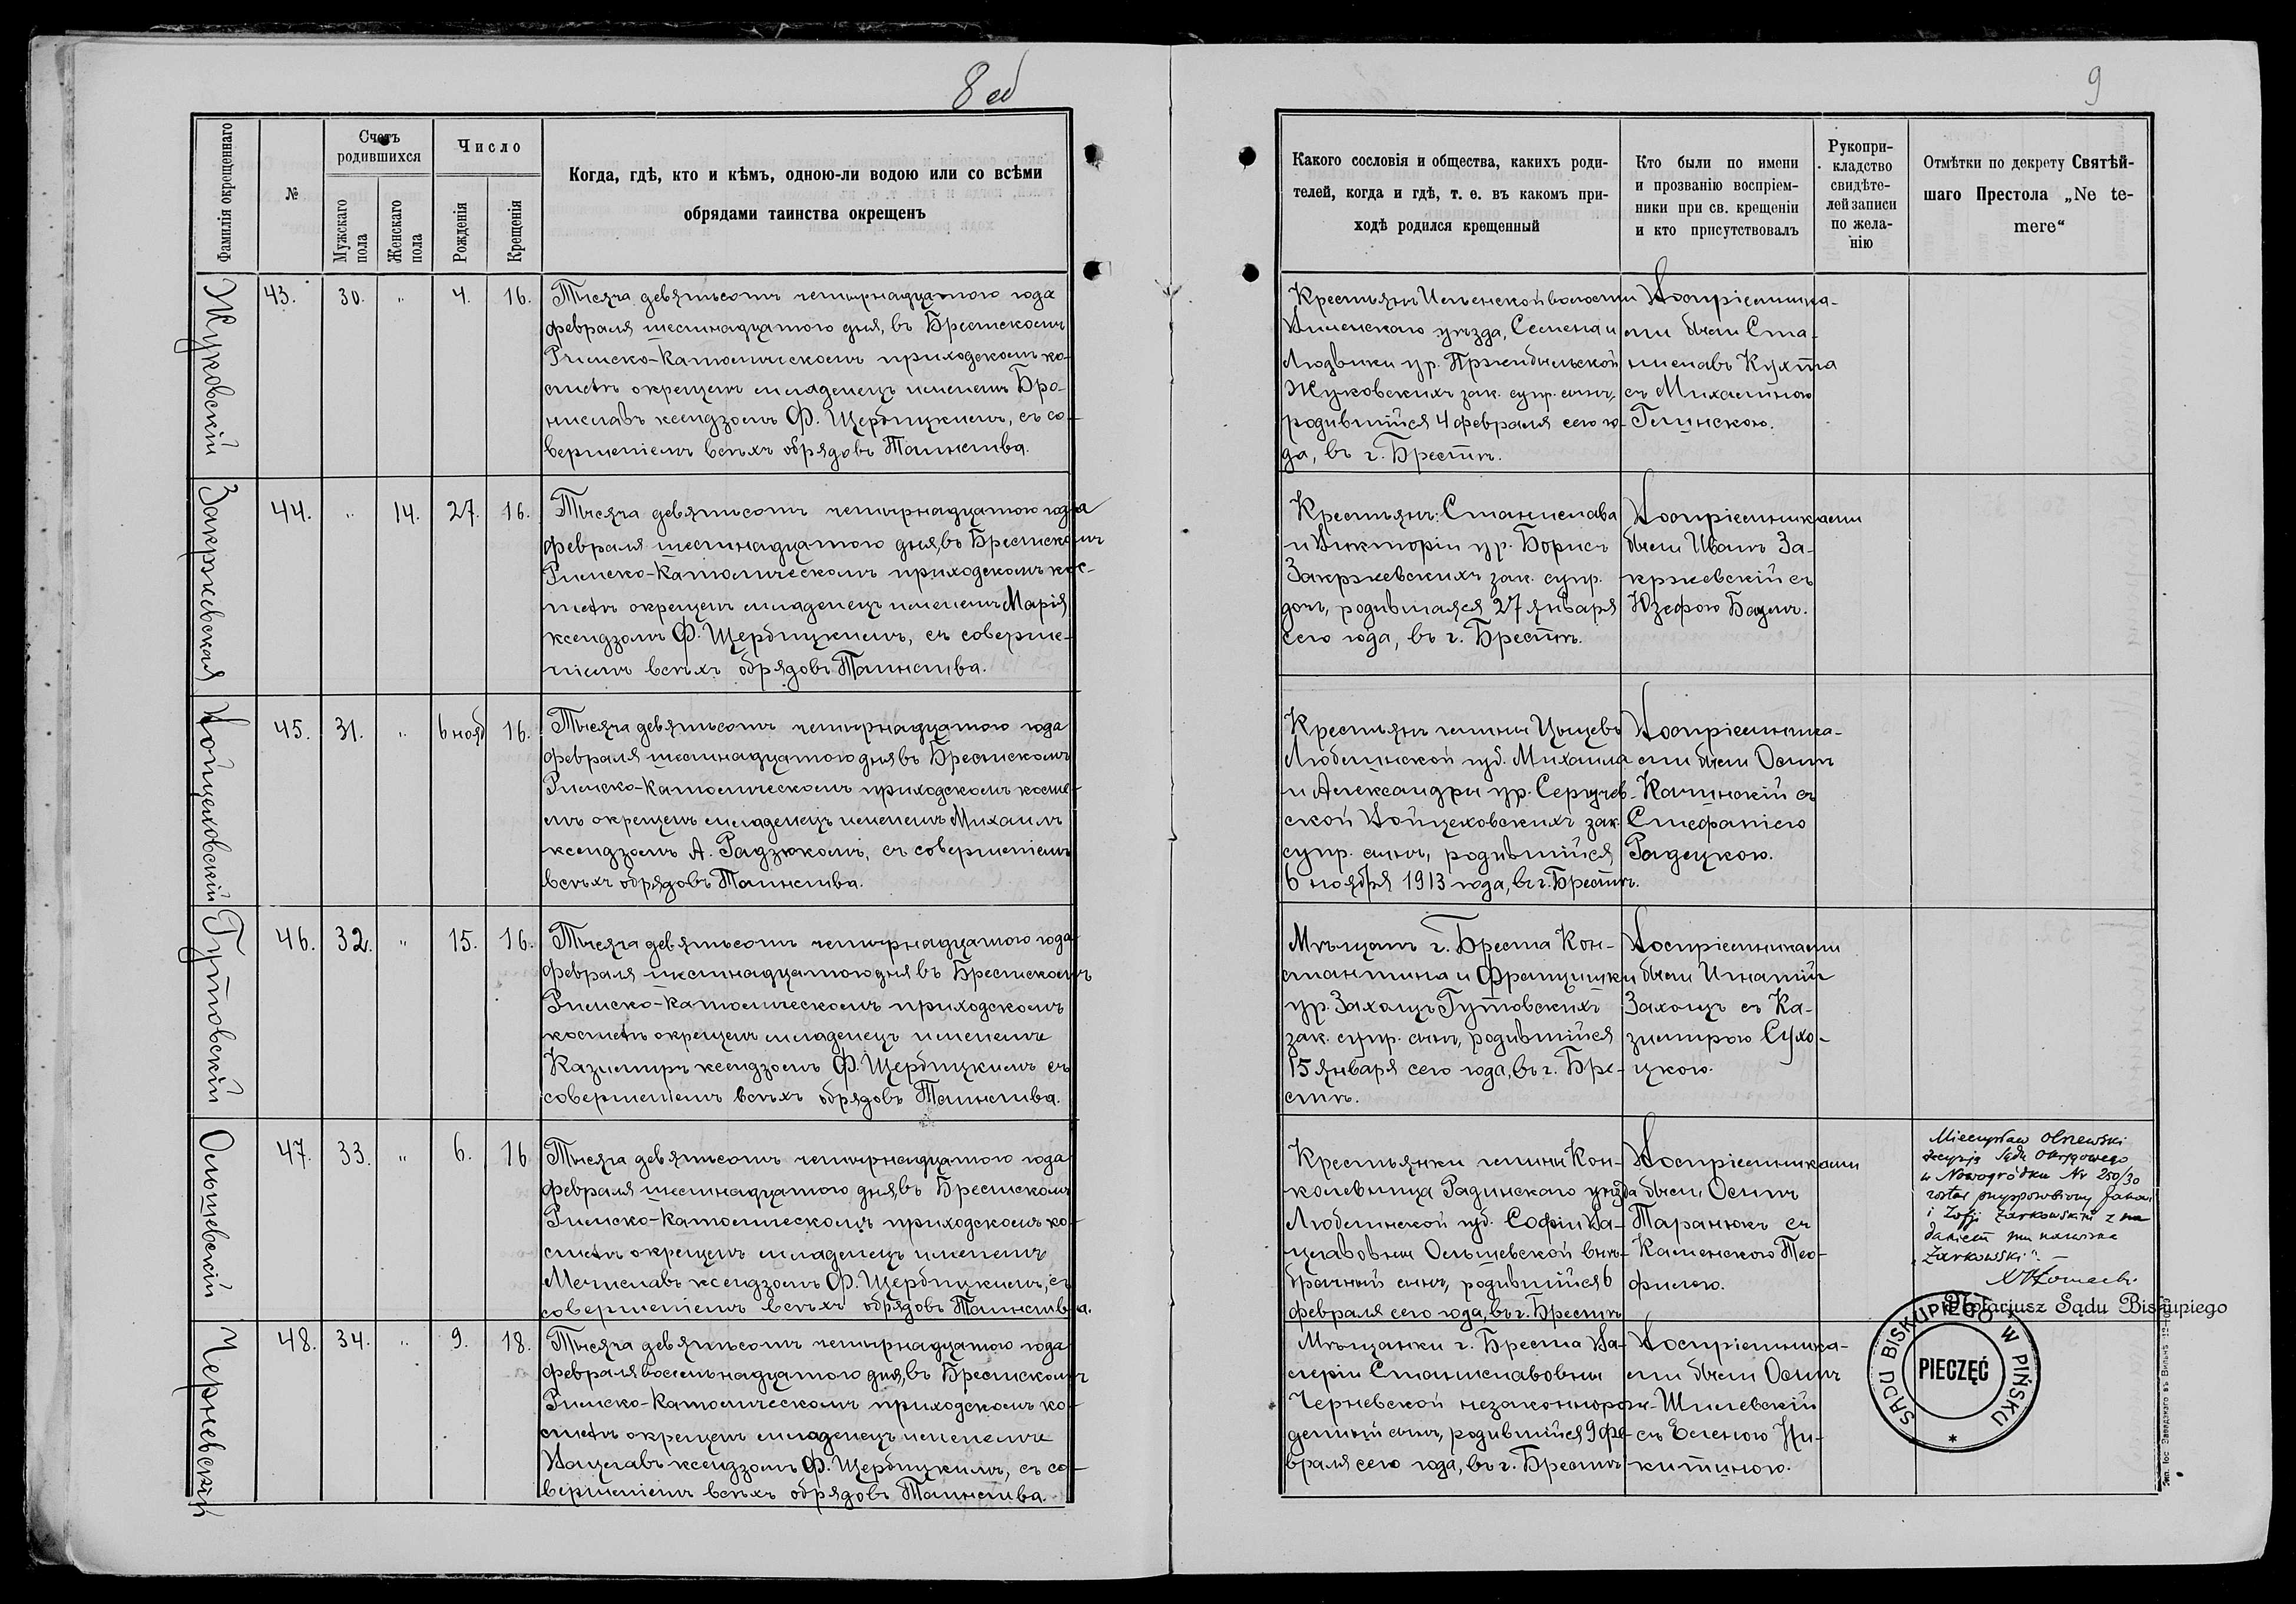 8 об
Фамилія окрещеннаго
№
Счетъ родившихся
Мужскаго пола
Женскаго пола
Число
Рожденія
Крещенія
Когда, гдѣ, кто и кѣмъ, одною-ли водою или со всѣми
обрядами таинства окрещенъ
Жуковскій
43.
30.
"
4.
16.
Тысяча девятьсотъ четырнадцатого года
февраля шестнадцатого дня, въ Брестскомъ
Римско-Католическомъ приходскомъ ко-
стелѣ окрещенъ младенецъ именемъ Бро-
ниславъ ксендзомъ Ф. Щербицкимъ, съ со-
вершеніемъ всѣхъ обрядовъ Таинства.
Закржевская
44.
"
14.
27.
16.
Тысяча девятьсотъ четырнадцатого года
февраля шестнадцатого дня, въ Брестскомъ
Римско-Католическомъ приходскомъ кос-
телѣ окрещенъ младенецъ именемъ Марія
ксендзомъ Ф. Щербицкимъ, съ соверше-
ніемъ всѣхъ обрядовъ Таинства.
Войцеховскій
45.
31.
"
6 нояб
16.
Тысяча девятьсотъ четырнадцатого года
февраля шестнадцатого дня въ Брестскомъ
Римско-Католическомъ приходскомъ косте-
лѣ окрещенъ младенецъ именемъ Михаилъ
ксендзомъ А. Радзюкомъ, съ совершеніемъ
всѣхъ обрядовъ Таинства.
Гутовскій
46.
32.
"
15.
16.
Тысяча девятьсотъ четырнадцатого года
февраля шестнадцатого дня въ Брестскомъ
Римско-Католическомъ приходскомъ
костелѣ окрещенъ младенецъ именемъ
Казимиръ ксендзомъ Ф. Щербицкимъ съ
совершеніемъ всѣхъ обрядовъ Таинства.
Ольшевскій
47.
33.
"
6.
16
Тысяча девятьсотъ четырнадцатого года
февраля шестнадцатого дня, въ Брестскомъ
Римско-Католическомъ приходскомъ ко-
стелѣ окрещенъ младенецъ именемъ
Мечиславъ ксендзомъ Ф. Щербицкимъ, съ
совершеніемъ всѣхъ обрядовъ Таинства.
Черневскій
48.
34.
"
9.
18.
Тысяча девятьсотъ четырнадцатого года
февраля восемьнадцатого дня, въ Брестскомъ
Римско-Католическомъ приходскомъ ко-
стелѣ окрещенъ младенецъ именемъ
Вацлавъ ксендзомъ Ф. Щербицкимъ, съ со-
вершеніемъ всѣхъ обрядовъ Таинства.
9
Какого сословія и общества, какихъ роди-
телей, когда и гдѣ, т. е. въ какомъ при-
ходѣ родился крещенный
Кто были по имени
и прозванію воспріем-
ники при св. крещеніи
и кто присутствовалъ
Рукопри-
кладство
свидѣте-
лей записи
по жела-
нію
Отмѣтки по декрету Святѣй-
шаго Престола „Ne te-
mere“
Крестьянъ волости
Виленскаго уѣзда, Семена и
Людвики ур. Пржибыльской
Жуковскихъ зак. супр. сынъ,
родившійся 4 февраля сего го-
да, въ г. Брестѣ.
Воспріемника-
ми были Ста-
ниславъ Кухта
съ Михалиною
Глинскою.
Крестьянъ: Станислава
и Викторіи ур. Борисъ
Закржевскихъ зак. супр.
дочь, родившаяся 27 января
сего года, въ г. Брестѣ.
Воспріемниками
были Иванъ За-
кржевскій съ
Юзефою
Крестьянъ гмины Цыцевъ
Люблинской губ. Михаила
и Александры ур. Сергуев-
ской Войцеховскихъ зак.
супр. сынъ, родившійся
6 ноября 1913 года, въ г. Брестѣ.
Воспріемника-
ми были Осипъ
Калинскій съ
Стефаніею
Радецкою.
Мѣщанъ г. Бреста Кон-
стантина и Францишки
ур. Захоцъ Гутовскихъ
зак. супр. сынъ, родившійся
15 января сего года, въ г. Бре-
стѣ.
Воспріемниками
были Игнатій
Захоцъ съ Ка-
зимирою Сухо-
цкою.
Крестьянки гмины Кон-
коленица Радинскаго уѣзда
Люблинской губ. Софіи Ва-
цлавовны Ольшевской внѣ-
брачный сынъ, родившійся 6
февраля сего года, въ г. Брестѣ
Воспріемниками
были Осипъ
Таранюкъ съ
Каменскою Тео-
филою.
Mieczysław Olszewski
decyzją Sądu Okręgowego
w Nowogródku Nr 250/30
został przysposobiony Janowi
i Zofji Żarkowskim z na
daniem mu nazwiska
„Żarkowski“. —
Notarjusz Sądu Biskupiego
SĄDU BISKUPIEGO W PIŃSKU *
PIECZĘĆ
Мѣщанки г. Бреста Ва-
леріи Станиславовны
Черневской незаконнорож-
денный сынъ, родившійся 9 фе-
враля сего года, въ г. Брестѣ
Воспріемника-
ми были Осипъ
Шилевскій
съ Еленою Ни-
китиною.